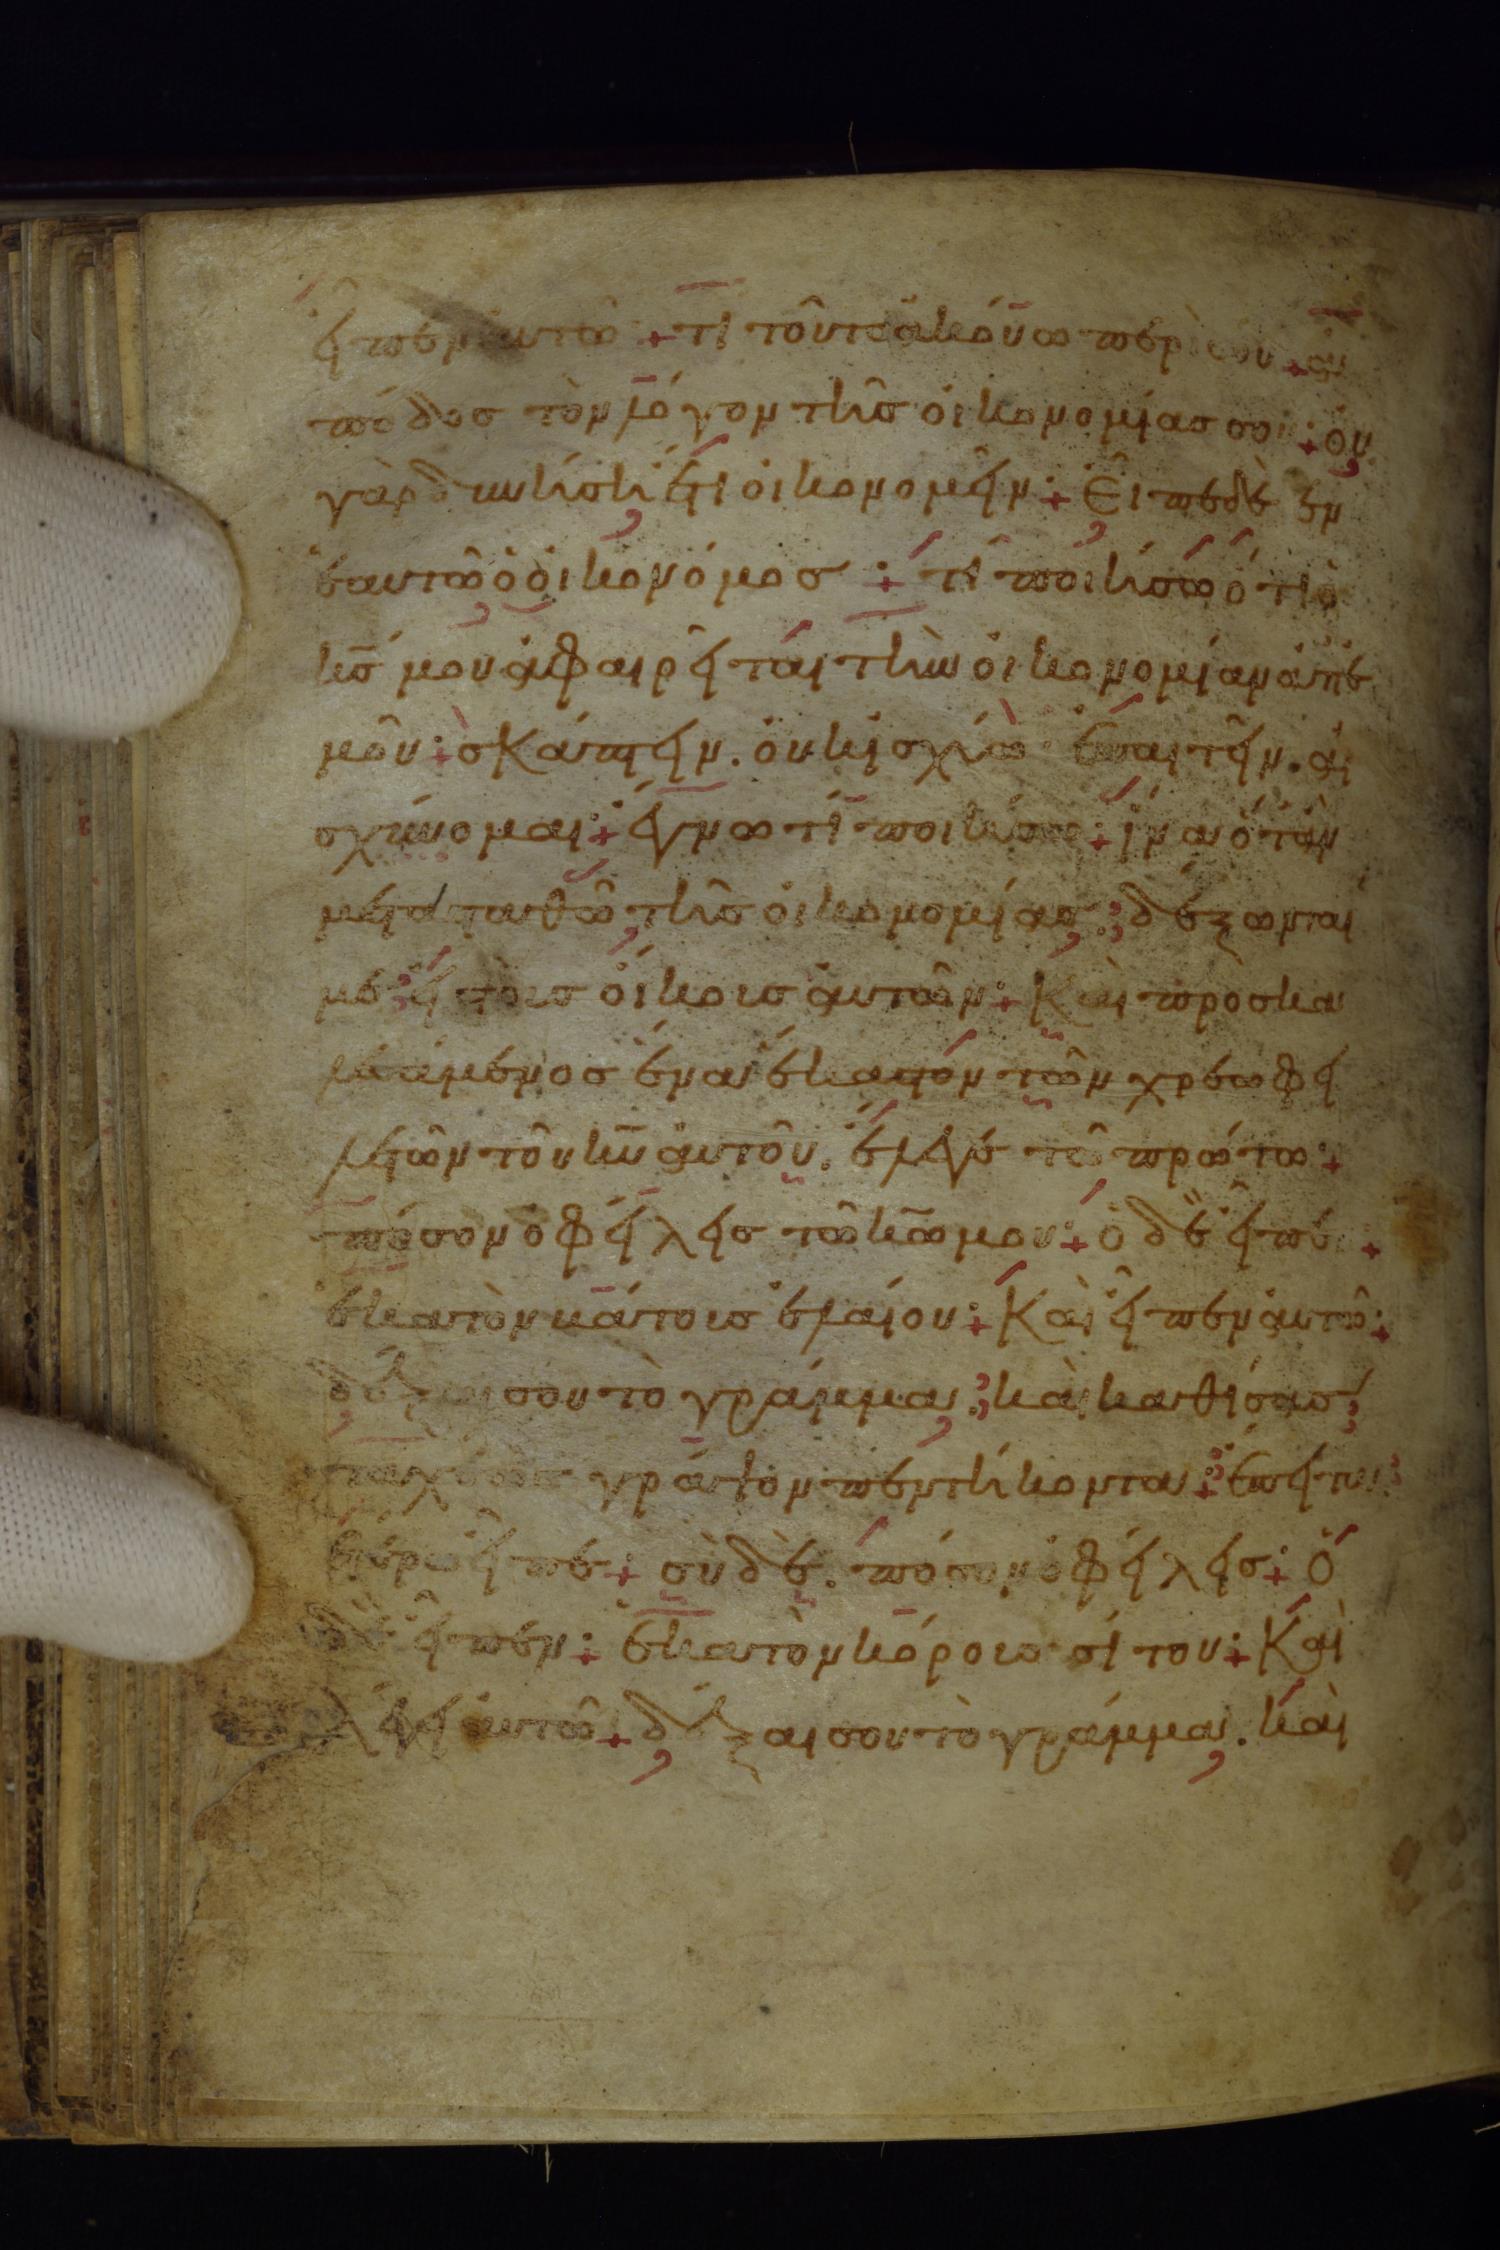 εἶπεν αὐτῶ + τί τοῦτο ἀκούω περὶ σοῦ + ἀ
πόδος τὸν λόγον τῆς οἰκονομίας σου + οὐ
γὰρ δυνήση ἔτι οἰκονομεῖν + Εἶπε δὲ ἐν
ἑαυτῶ ὁ οἰκονόμος + τί ποιήσω ὅτι ὁ
κ̅ς̅ μου ἀφαιρεῖται τὴν οἰκονομίαν ἀπ' ἐ
μοῦ + σκάπτειν. οὐκ ἰσχύω ἐπαιτεῖν. αἰ
σχύνομαι + ἔγνω τί ποιήσω + ἵνα ὅταν
μετασταθῶ τῆς οἰκονομίας + δέξωνται
με εἰς τοὺς οἴκους αὐτῶν + Καὶ προσκα
λεσάμενος ἕνα ἕκαστον τῶν χρεωφει
λετῶν τοῦ κ̅υ̅ αὐτοῦ. ἔλεγε τῶ πρώτω +
πόσον ὀφείλεις τῶ κ̅ω̅ μου + ὁ δὲ εἶπεν +
ἑκατὸν βάτους ἐλαίου + Καὶ εἶπεν αὐτῶ +
δέξαι σου τὸ γράμμα. καὶ καθίσας
ταχέως γράψον πεντήκοντα + ἔπειτα
ἑτέρω εἶπε + σὺ δὲ. πόσον ὀφείλεις + ὁ
δὲ εἶπεν + ἑκατὸν κόρους σίτου + Καὶ
λέγει αὐτῶ + δέξαι σου τὸ γράμμα. καὶ